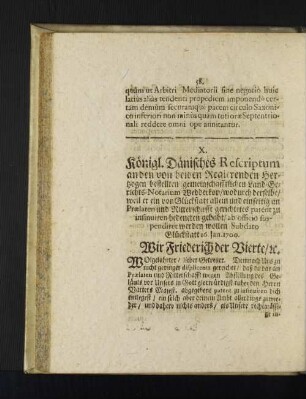 quàm in Arbitri Mediatorii sive negotio huic
latius alias tendenti propediem imponendo cer-
tam demùm securamque pacem circulo Saxoni-
co inferiori non minùs quam toti oræ Septentrio-
nali reddere omni ope annitantur.
X.
Königl. Dänisches Rescriptum
an den von beyden Regierenden Her-
zogen bestellten gemeinschafftlichen Land-Ge-
richts-Notarium Wedderkop / wodurch derselbe /
weil er ein von Glückstatt allein und einseitig an
Prælaten und Ritterschafft gerichtetes patent zu
insinuiren bedencken gehabt / ab officio su-
spendiret werden wollen. Subdato
Glückstatt 16 Jan. 1700.
Wir Friederich der Vierte / ꝛc.
Wolgelahrter / lieber Getreuer. Demnach Uns zu
nicht geringer displicentz gereichet / daß du der an
Prælaten und Ritterschafft wegen Abstellung des Ge-
läuts vor Unsers in Gott glorwürdigst ruhenden Herrn
Vatters Mayest. abgegebene patent zu insinuiren dich